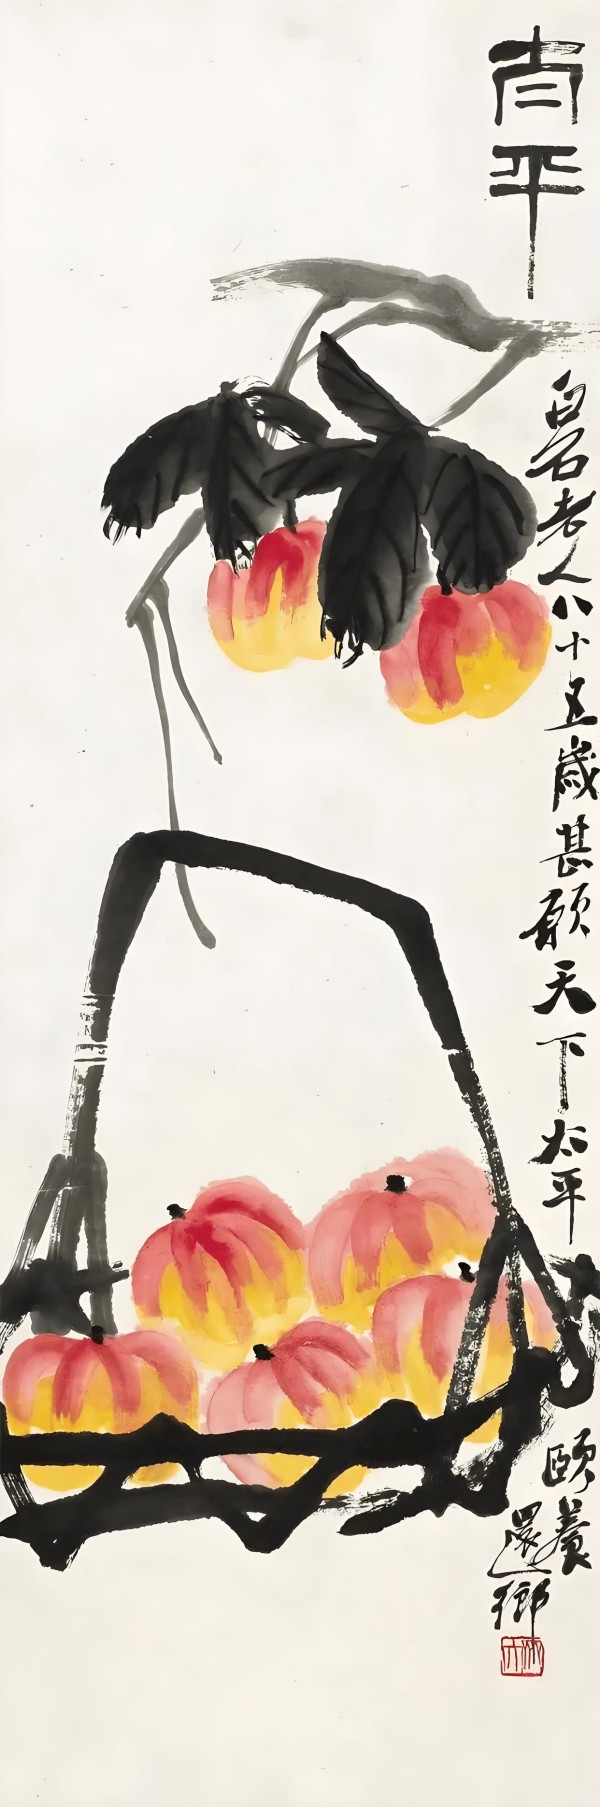 太平
白石老人八十五歲甚願天下太平
頤養
還鄉